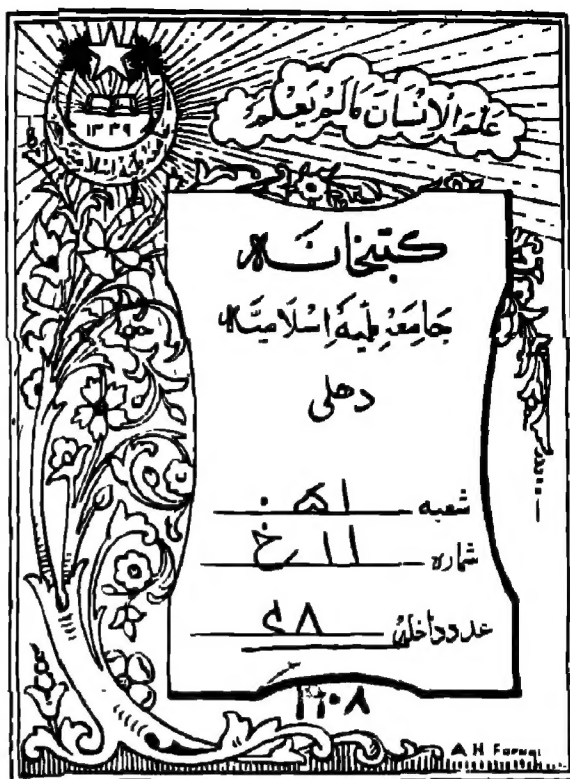 علم الانسان مالم يعلم
۱۳۳۹
کتبخانہ
جامعہ ملیہ اسلامیہ
دهلی
شعبہ
شمارہ ۱۱ خ
عدد داخلہ ۶۸
A H Faruqi